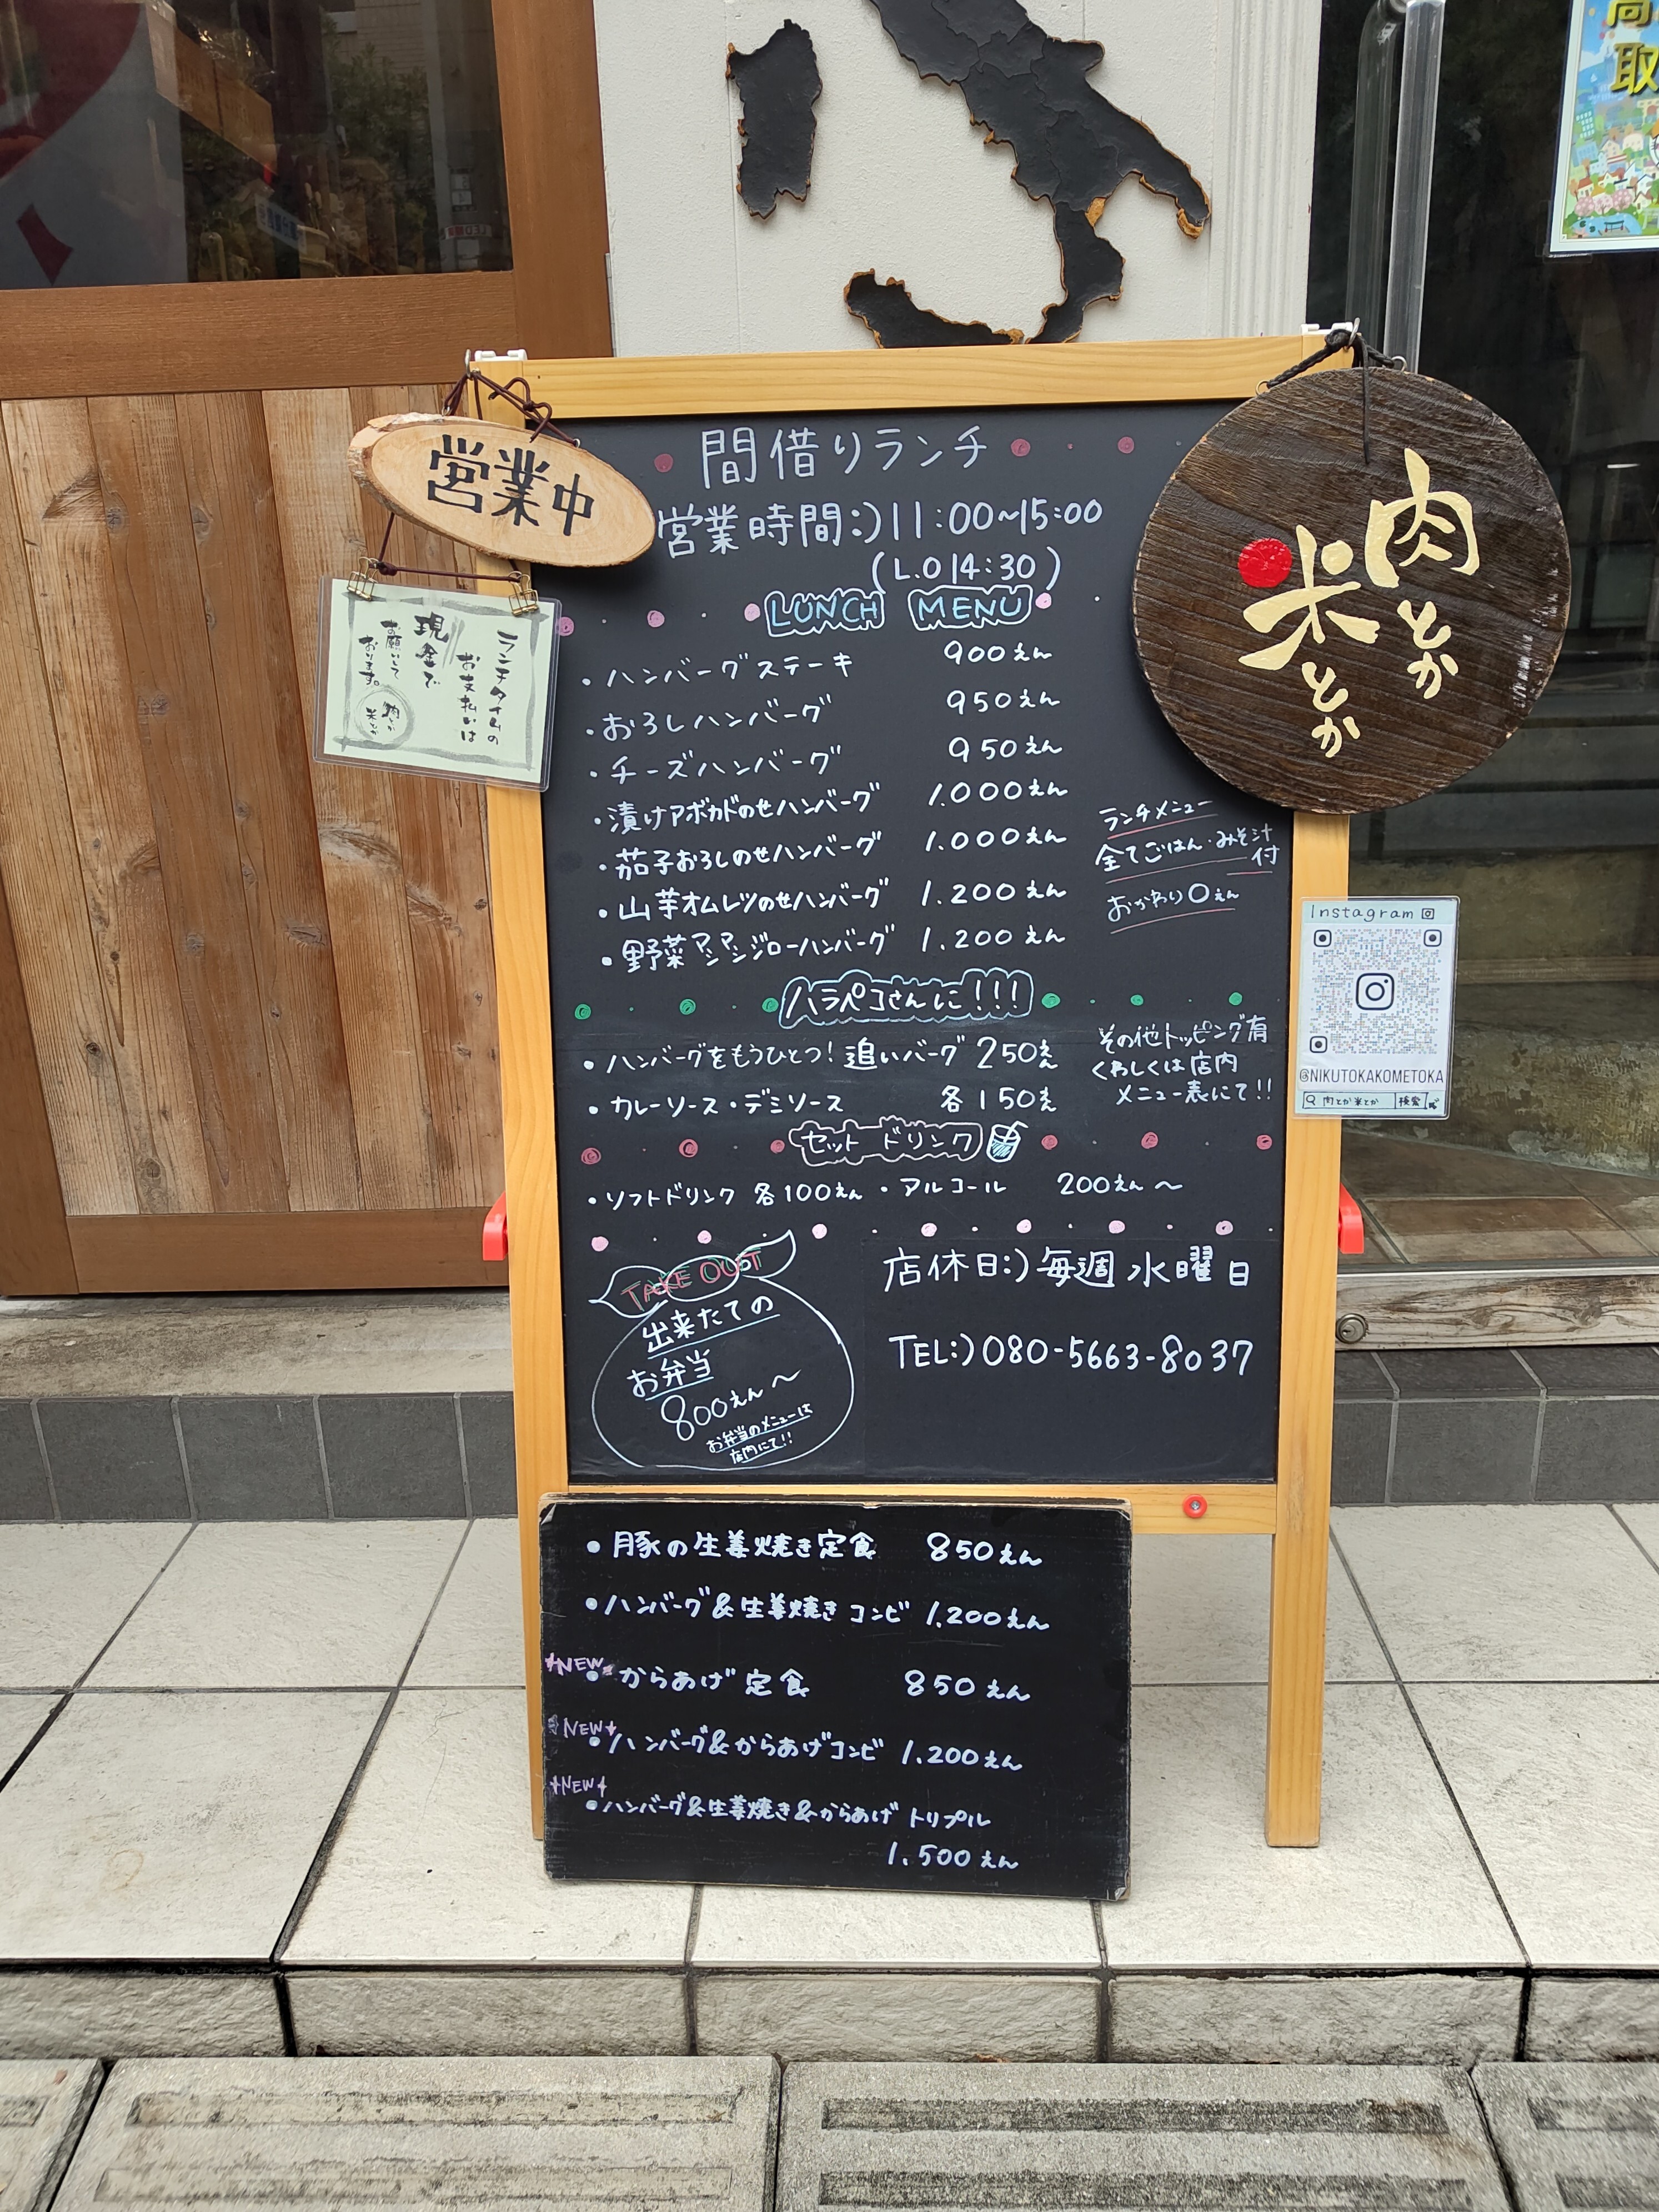 営業中
ランチタイムの
お支払いは
現金で
お願いして
おります。
肉とか
米とか
間借りランチ
営業時間:)11:00~15:00
(L.O 14:30)
LUNCH MENU
・ハンバーグステーキ 900えん
・おろしハンバーグ 950えん
・チーズハンバーグ 950えん
・漬けアボカドのせハンバーグ 1.000えん
・茄子おろしのせハンバーグ 1.000えん
・山芋オムレツのせハンバーグ 1.200えん
・野菜マシマシジローハンバーグ 1.200えん
ランチメニュー
全てごはん・みそ汁
付
おかわり0えん
ハラペコさんに!!!
・ハンバーグをもうひとつ!追いバーグ 250えん
・カレーソース・デミソース 各150え
その他トッピング有
くわしくは店内
メニュー表にて!!
セットドリンク
・ソフトドリンク 各100えん ・アルコール 200えん~
TAKE OUT
出来たての
お弁当
800えん~
お弁当のメニューは
店内にて!!
店休日:)毎週水曜日
TEL:)080-5663-8037
肉とか
米とか
Instagram
@NIKUTOKAKOMETOKA
肉とか米とか 検索
・豚の生姜焼き定食 850えん
・ハンバーグ&生姜焼きコンビ 1.200えん
NEW
・からあげ定食 850えん
NEW
・ハンバーグ&からあげコンビ 1.200えん
NEW
・ハンバーグ&生姜焼き&からあげ トリプル
1.500えん
取